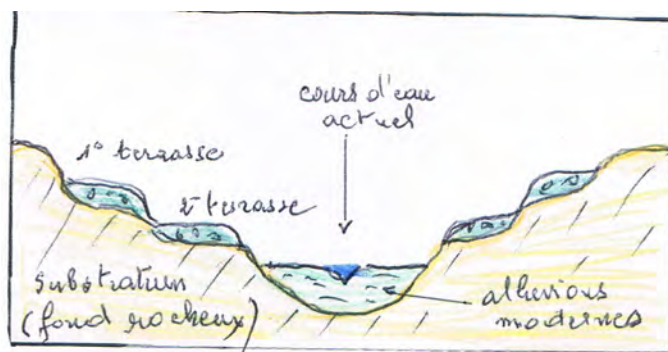 cours d'eau
actuel
1° terrasse
2° terrasse
substratum
(fond rocheux)
alluvions
modernes